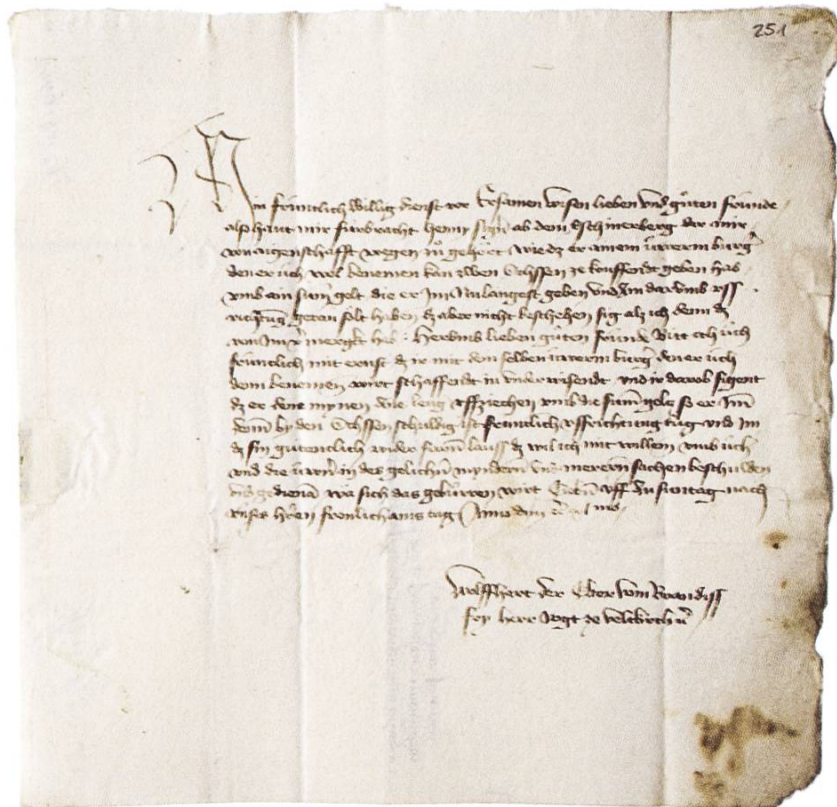 251
Min früntlich willig dienst vor Ersamen wisen lieben und guͦten fründe
also haut mir fürbracht henny ab dem Eschinerberg der mir
von aigenschafft wegen zuͦ gehört wie dz er ainem üwerm burg
den er üch wol benemen kan zwen Ochssen ze kouffendt geben hab
umb ain sum gelt die er Im nulangest geben und Im darumb uss
richtung getan solt haben dz aber nicht beschehen sig als ich denn dz
von Im vermergkt hab Herumb lieben guͦten fründe Bitt ich üch
früntlich mit ernst dz ir mit dem selben üwerm burg den er üch
denn benemen wirt schaffendt in underwisendt und ir darob sigent
dz er dem mynen die leng uffziechen umb die sum geltz so er Im
denn by den Ochssen schuldig ist früntlich ussrichtung tuͦg und Im
dz sin guͦtenclich wider faren lauss dz wil ich mit willen umb üch
und die üwern in des gelichen myndern und merern sachen beschulden
und gedienen wa sich das gebürren wirt Geben uff suntag nach
unsers herren fronlichams tag Anno dm
Wolffhert der Elter vom Brandiss
fry herr vogt ze veltkirch